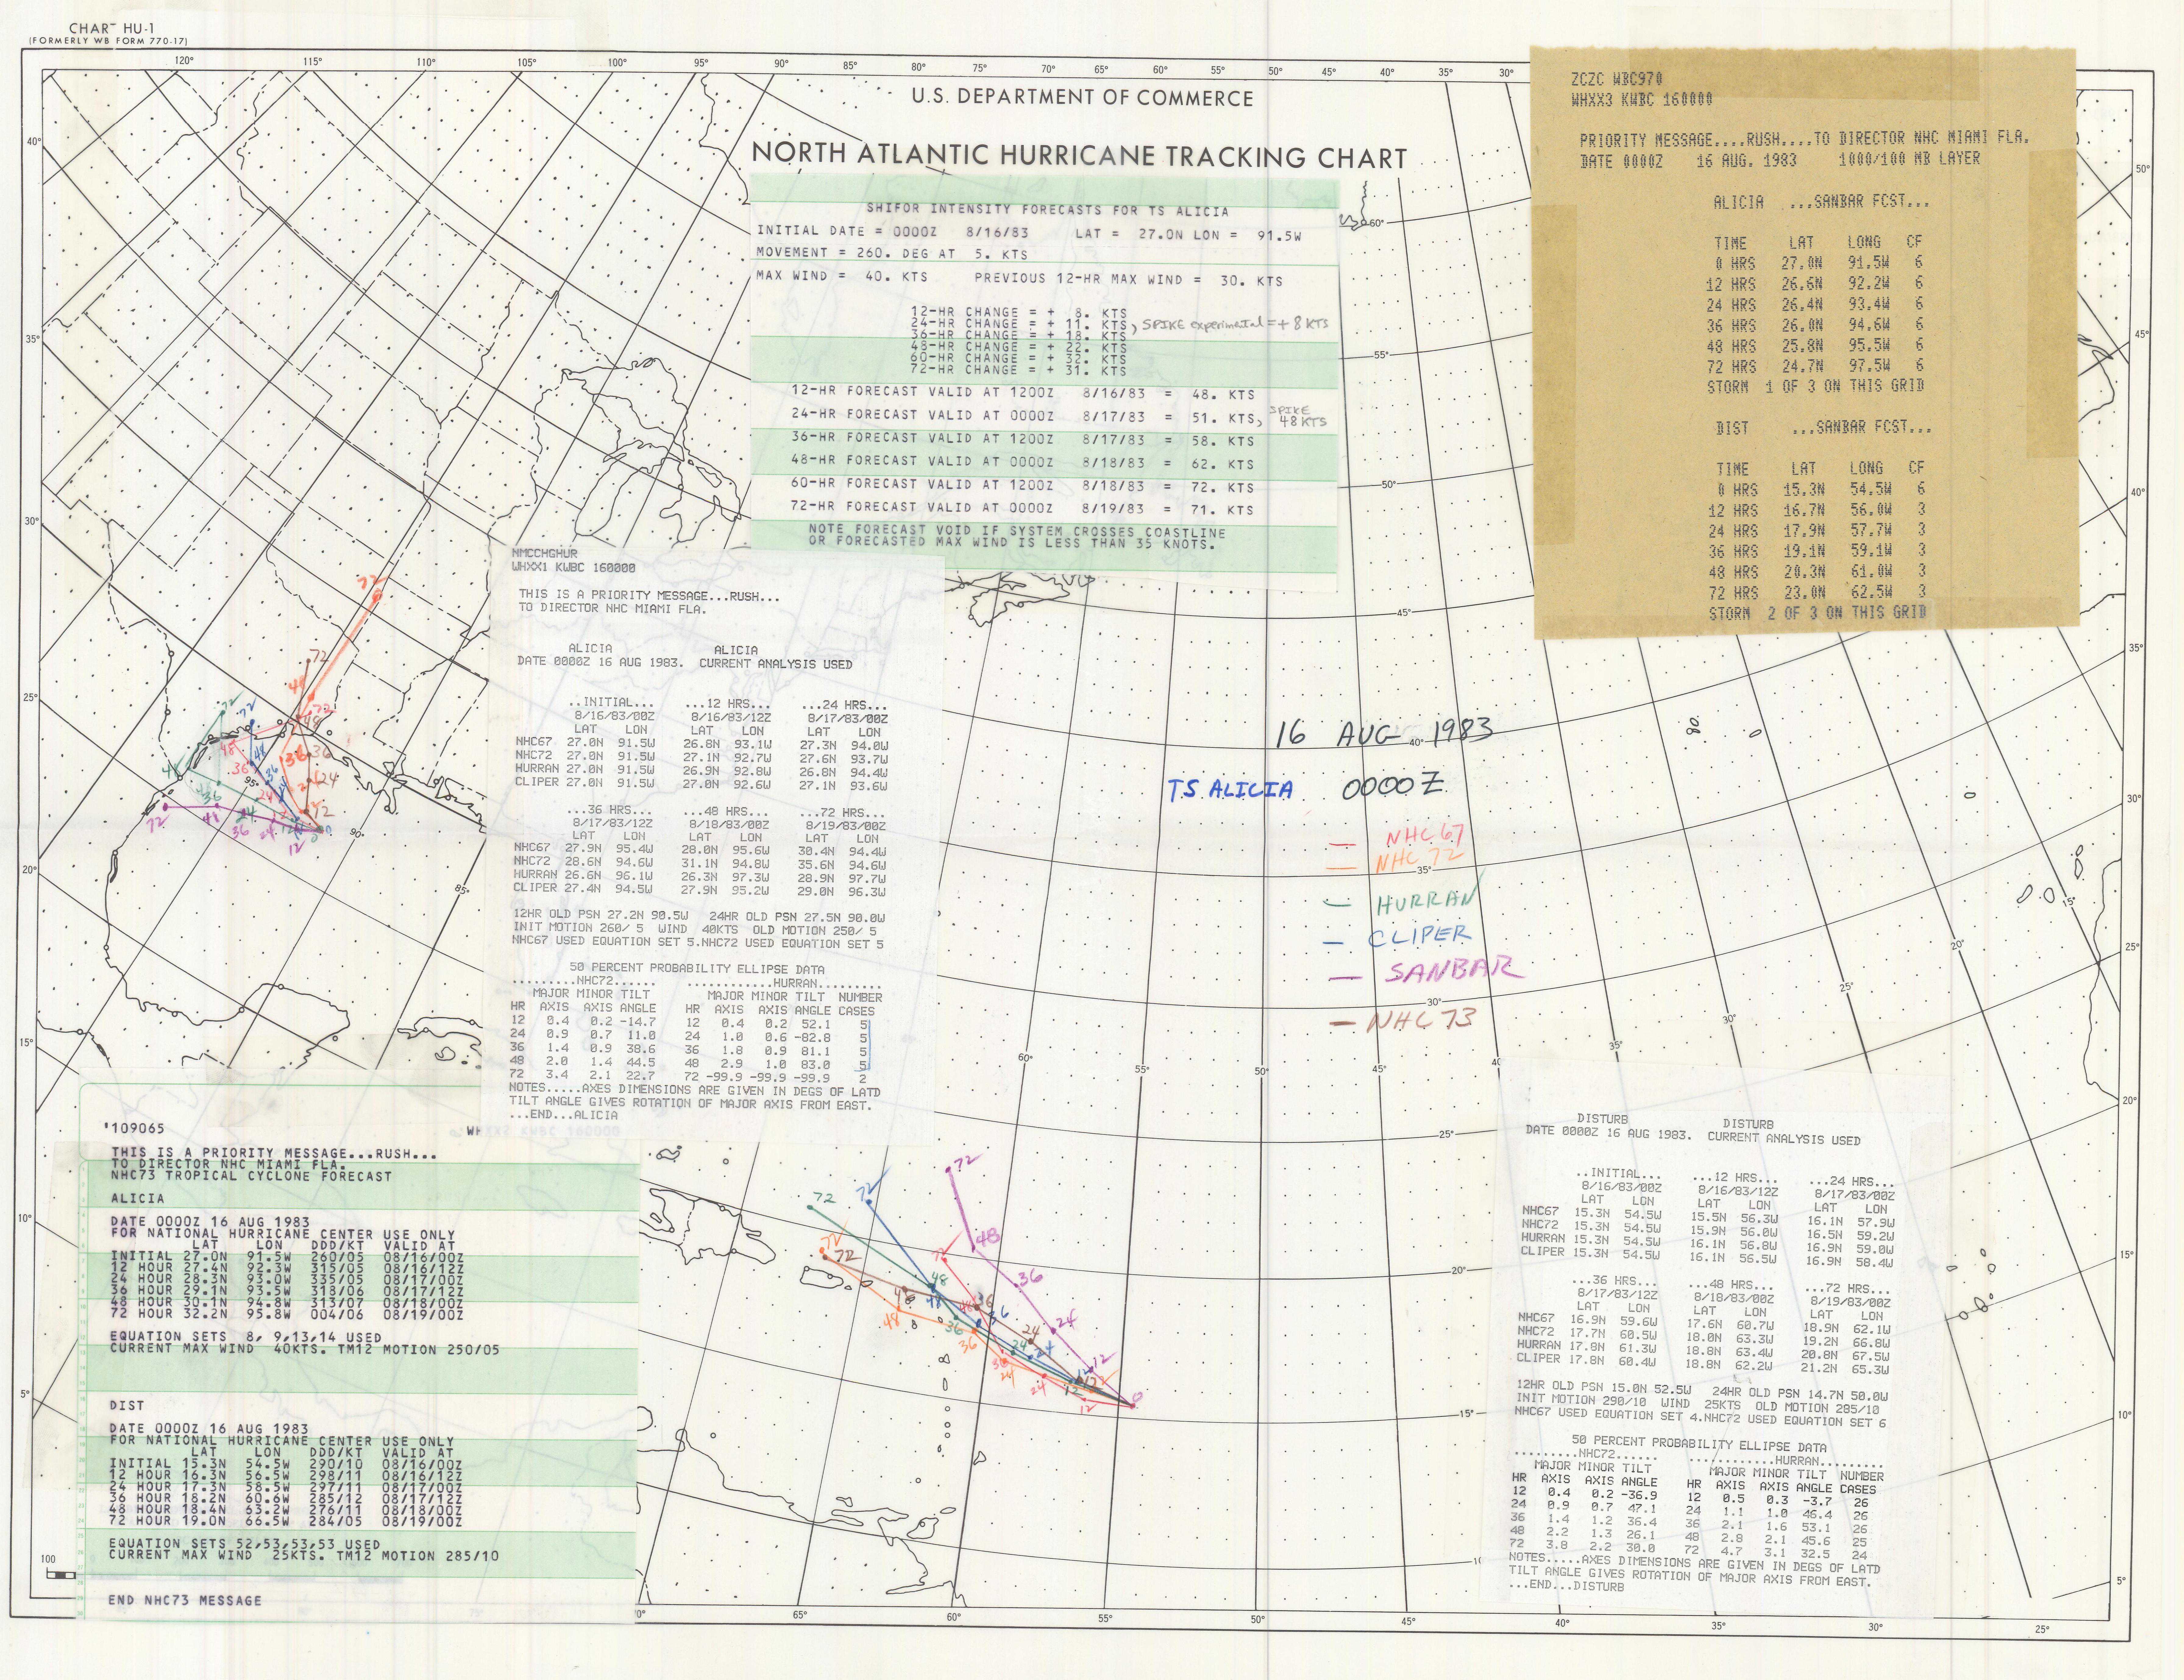 CHART HU-1
(FORMERLY WB FORM 770-17)
120° 115° 110° 105° 100° 95° 90° 85° 80° 75° 70° 65° 60° 55° 50° 45° 40° 35° 30°
U.S. DEPARTMENT OF COMMERCE
NORTH ATLANTIC HURRICANE TRACKING CHART
SHIFOR INTENSITY FORECASTS FOR TS ALICIA
INITIAL DATE = 0000Z 8/16/83 LAT = 27.0N LON = 91.5W
MOVEMENT = 260. DEG AT 5. KTS
MAX WIND = 40. KTS PREVIOUS 12-HR MAX WIND = 30. KTS
12-HR CHANGE = + 8. KTS
24-HR CHANGE = + 11. KTS, SPIKE experimental = +8 KTS
36-HR CHANGE = + 18. KTS
48-HR CHANGE = + 22. KTS
60-HR CHANGE = + 32. KTS
72-HR CHANGE = + 31. KTS
12-HR FORECAST VALID AT 1200Z 8/16/83 = 48. KTS
24-HR FORECAST VALID AT 0000Z 8/17/83 = 51. KTS, SPIKE 48 KTS
36-HR FORECAST VALID AT 1200Z 8/17/83 = 58. KTS
48-HR FORECAST VALID AT 0000Z 8/18/83 = 62. KTS
60-HR FORECAST VALID AT 1200Z 8/18/83 = 72. KTS
72-HR FORECAST VALID AT 0000Z 8/19/83 = 71. KTS
NOTE FORECAST VOID IF SYSTEM CROSSES COASTLINE
OR FORECASTED MAX WIND IS LESS THAN 35 KNOTS.
ZCZC WBC970
WHXX3 KWBC 160000
PRIORITY MESSAGE....RUSH....TO DIRECTOR NHC MIAMI FLA.
DATE 0000Z 16 AUG. 1983 1000/100 MB LAYER
ALICIA ...SANBAR FCST...
TIME LAT LONG CF
0 HRS 27.0N 91.5W 6
12 HRS 26.6N 92.2W 6
24 HRS 26.4N 93.4W 6
36 HRS 26.0N 94.6W 6
48 HRS 25.8N 95.5W 6
72 HRS 24.7N 97.5W 6
STORM 1 OF 3 ON THIS GRID
DIST ...SANBAR FCST...
TIME LAT LONG CF
0 HRS 15.3N 54.5W 6
12 HRS 16.7N 56.0W 3
24 HRS 17.9N 57.7W 3
36 HRS 19.1N 59.1W 3
48 HRS 20.3N 61.0W 3
72 HRS 23.0N 62.5W 3
STORM 2 OF 3 ON THIS GRID
NMCCHGHUR
WHXX1 KWBC 160000
THIS IS A PRIORITY MESSAGE...RUSH...
TO DIRECTOR NHC MIAMI FLA.
ALICIA ALICIA
DATE 0000Z 16 AUG 1983. CURRENT ANALYSIS USED
..INITIAL... ...12 HRS... ...24 HRS...
8/16/83/00Z 8/16/83/12Z 8/17/83/00Z
LAT LON LAT LON LAT LON
NHC67 27.0N 91.5W 26.8N 93.1W 27.3N 94.0W
NHC72 27.0N 91.5W 27.1N 92.7W 27.6N 93.7W
HURRAN 27.0N 91.5W 26.9N 92.8W 26.8N 94.4W
CLIPER 27.0N 91.5W 27.0N 92.6W 27.1N 93.6W
...36 HRS... ...48 HRS... ...72 HRS...
8/17/83/12Z 8/18/83/00Z 8/19/83/00Z
LAT LON LAT LON LAT LON
NHC67 27.9N 95.4W 28.0N 95.6W 30.4N 94.4W
NHC72 28.6N 94.6W 31.1N 94.8W 35.6N 94.6W
HURRAN 26.6N 96.1W 26.3N 97.3W 28.9N 97.7W
CLIPER 27.4N 94.5W 27.9N 95.2W 29.0N 96.3W
12HR OLD PSN 27.2N 90.5W 24HR OLD PSN 27.5N 90.0W
INIT MOTION 260/ 5 WIND 40KTS OLD MOTION 250/ 5
NHC67 USED EQUATION SET 5.NHC72 USED EQUATION SET 5
50 PERCENT PROBABILITY ELLIPSE DATA
.........NHC72...... ............HURRAN.........
MAJOR MINOR TILT MAJOR MINOR TILT NUMBER
HR AXIS AXIS ANGLE HR AXIS AXIS ANGLE CASES
12 0.4 0.2 -14.7 12 0.4 0.2 52.1 5
24 0.9 0.7 11.0 24 1.0 0.6 -82.8 5
36 1.4 0.9 38.6 36 1.8 0.9 81.1 5
48 2.0 1.4 44.5 48 2.9 1.0 83.0 5
72 3.4 2.1 22.7 72 -99.9 -99.9 -99.9 2
NOTES.....AXES DIMENSIONS ARE GIVEN IN DEGS OF LATD
TILT ANGLE GIVES ROTATION OF MAJOR AXIS FROM EAST.
...END...ALICIA
16 AUG 1983
TS ALICIA 0000Z
NHC 67
NHC 72
HURRAN
CLIPER
SANBAR
NHC 73
'109065
THIS IS A PRIORITY MESSAGE...RUSH...
TO DIRECTOR NHC MIAMI FLA.
NHC73 TROPICAL CYCLONE FORECAST
ALICIA
DATE 0000Z 16 AUG 1983
FOR NATIONAL HURRICANE CENTER USE ONLY
LAT LON DDD/KT VALID AT
INITIAL 27.0N 91.5W 260/05 08/16/00Z
12 HOUR 27.4N 92.3W 315/05 08/16/12Z
24 HOUR 28.3N 93.0W 335/05 08/17/00Z
36 HOUR 29.1N 93.5W 318/06 08/17/12Z
48 HOUR 30.1N 94.8W 313/07 08/18/00Z
72 HOUR 32.2N 95.8W 004/06 08/19/00Z
EQUATION SETS 8, 9,13,14 USED
CURRENT MAX WIND 40KTS. TM12 MOTION 250/05
DIST
DATE 0000Z 16 AUG 1983
FOR NATIONAL HURRICANE CENTER USE ONLY
LAT LON DDD/KT VALID AT
INITIAL 15.3N 54.5W 290/10 08/16/00Z
12 HOUR 16.3N 56.5W 298/11 08/16/12Z
24 HOUR 17.3N 58.5W 297/11 08/17/00Z
36 HOUR 18.2N 60.6W 285/12 08/17/12Z
48 HOUR 18.4N 63.2W 276/11 08/18/00Z
72 HOUR 19.0N 66.5W 284/05 08/19/00Z
EQUATION SETS 52,53,53,53 USED
CURRENT MAX WIND 25KTS. TM12 MOTION 285/10
END NHC73 MESSAGE
DISTURB DISTURB
DATE 0000Z 16 AUG 1983. CURRENT ANALYSIS USED
..INITIAL... ...12 HRS... ...24 HRS...
8/16/83/00Z 8/16/83/12Z 8/17/83/00Z
LAT LON LAT LON LAT LON
NHC67 15.3N 54.5W 15.5N 56.3W 16.1N 57.9W
NHC72 15.3N 54.5W 15.9N 56.0W 16.5N 59.2W
HURRAN 15.3N 54.5W 16.1N 56.8W 16.9N 59.0W
CLIPER 15.3N 54.5W 16.1N 56.5W 16.9N 58.4W
...36 HRS... ...48 HRS... ...72 HRS...
8/17/83/12Z 8/18/83/00Z 8/19/83/00Z
LAT LON LAT LON LAT LON
NHC67 16.9N 59.6W 17.6N 60.7W 18.9N 62.1W
NHC72 17.7N 60.5W 18.0N 63.3W 19.2N 66.8W
HURRAN 17.8N 61.3W 18.8N 63.4W 20.8N 67.5W
CLIPER 17.8N 60.4W 18.8N 62.2W 21.2N 65.3W
12HR OLD PSN 15.0N 52.5W 24HR OLD PSN 14.7N 50.0W
INIT MOTION 290/10 WIND 25KTS OLD MOTION 285/10
NHC67 USED EQUATION SET 4.NHC72 USED EQUATION SET 6
50 PERCENT PROBABILITY ELLIPSE DATA
.........NHC72...... ............HURRAN.........
MAJOR MINOR TILT MAJOR MINOR TILT NUMBER
HR AXIS AXIS ANGLE HR AXIS AXIS ANGLE CASES
12 0.4 0.2 -36.9 12 0.5 0.3 -3.7 26
24 0.9 0.7 47.1 24 1.1 1.0 46.4 26
36 1.4 1.2 36.4 36 2.1 1.6 53.1 26
48 2.2 1.3 26.1 48 2.8 2.1 45.6 25
72 3.8 2.2 30.0 72 4.7 3.1 32.5 24
NOTES.....AXES DIMENSIONS ARE GIVEN IN DEGS OF LATD
TILT ANGLE GIVES ROTATION OF MAJOR AXIS FROM EAST.
...END...DISTURB
100
65° 60° 55° 50° 45° 40° 35° 30° 25°